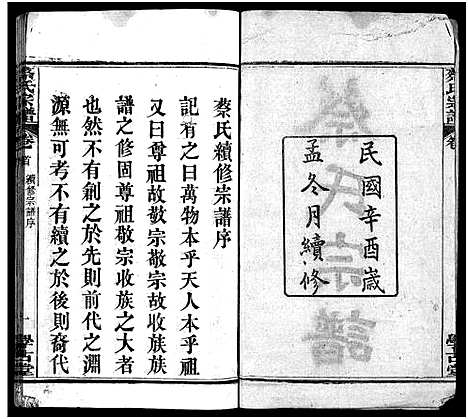 蔡氏宗譜
民國辛酉歲
孟冬月續修
蔡氏宗譜
卷
蔡氏續修宗譜序
記有之曰萬物本乎天人本乎祖
又曰尊祖故敬宗敬宗故收族
譜之修固尊祖敬宗收族之大者
也然不有創之於先則前代之淵
源無可考不有續之於後則裔代
蔡氏宗譜
卷首
續修宗譜序
一